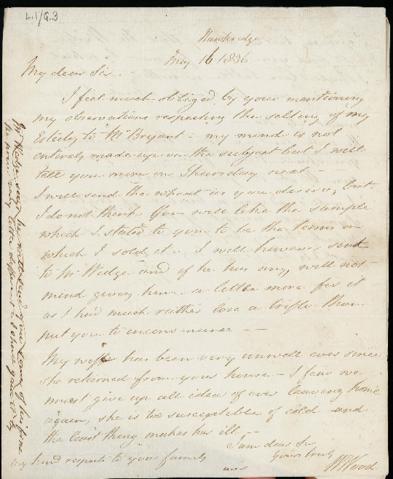 L.1/G.3
May 16 1836
My dear Sir
I feel much obliged by your mentioning
my observations respecting the selling of my
Estate to Mr Bryant - my mind is not
entirely made up on the subject but I will
tell you more on Thursday next -
I will send the wheat as you desire, but
I do not think you will like the sample
which I stated to you to be the terms on
which I sold it. I will however send
to Mr Wedge and if he has any will not
mind giving him a little more for it
as I had much rather lose a trifle than
put you to inconvenience --
My wife has been very unwell ever since
she returned from your house - I fear we
must give up all idea of ever leaving home
again, she is so susceptible of cold and
the least thing makes her ill --
I am dear Sir
my kind respects to your family
Yours truly
Wood
Mr Wedge says he